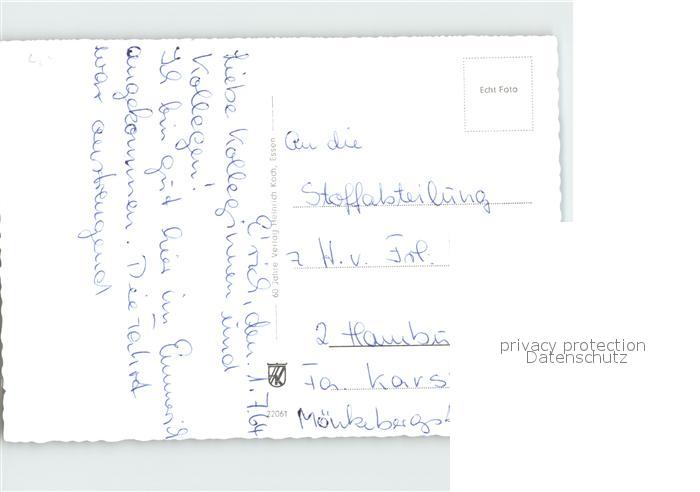 E'rich, den 1.7.64
Liebe Kolleginnen und
Kollegen!
Ich bin gut hier im Emmerich
angekommen. Die Fahrt
war anstrengend
60 Jahre Verlag Heinrich Koch, Essen
22061
Echt Foto
An die
Stoffabteilung
z H. v. Frl.
2 Hambu
Fa. Kars
Mönkebergst
privacy protection
Datenschutz